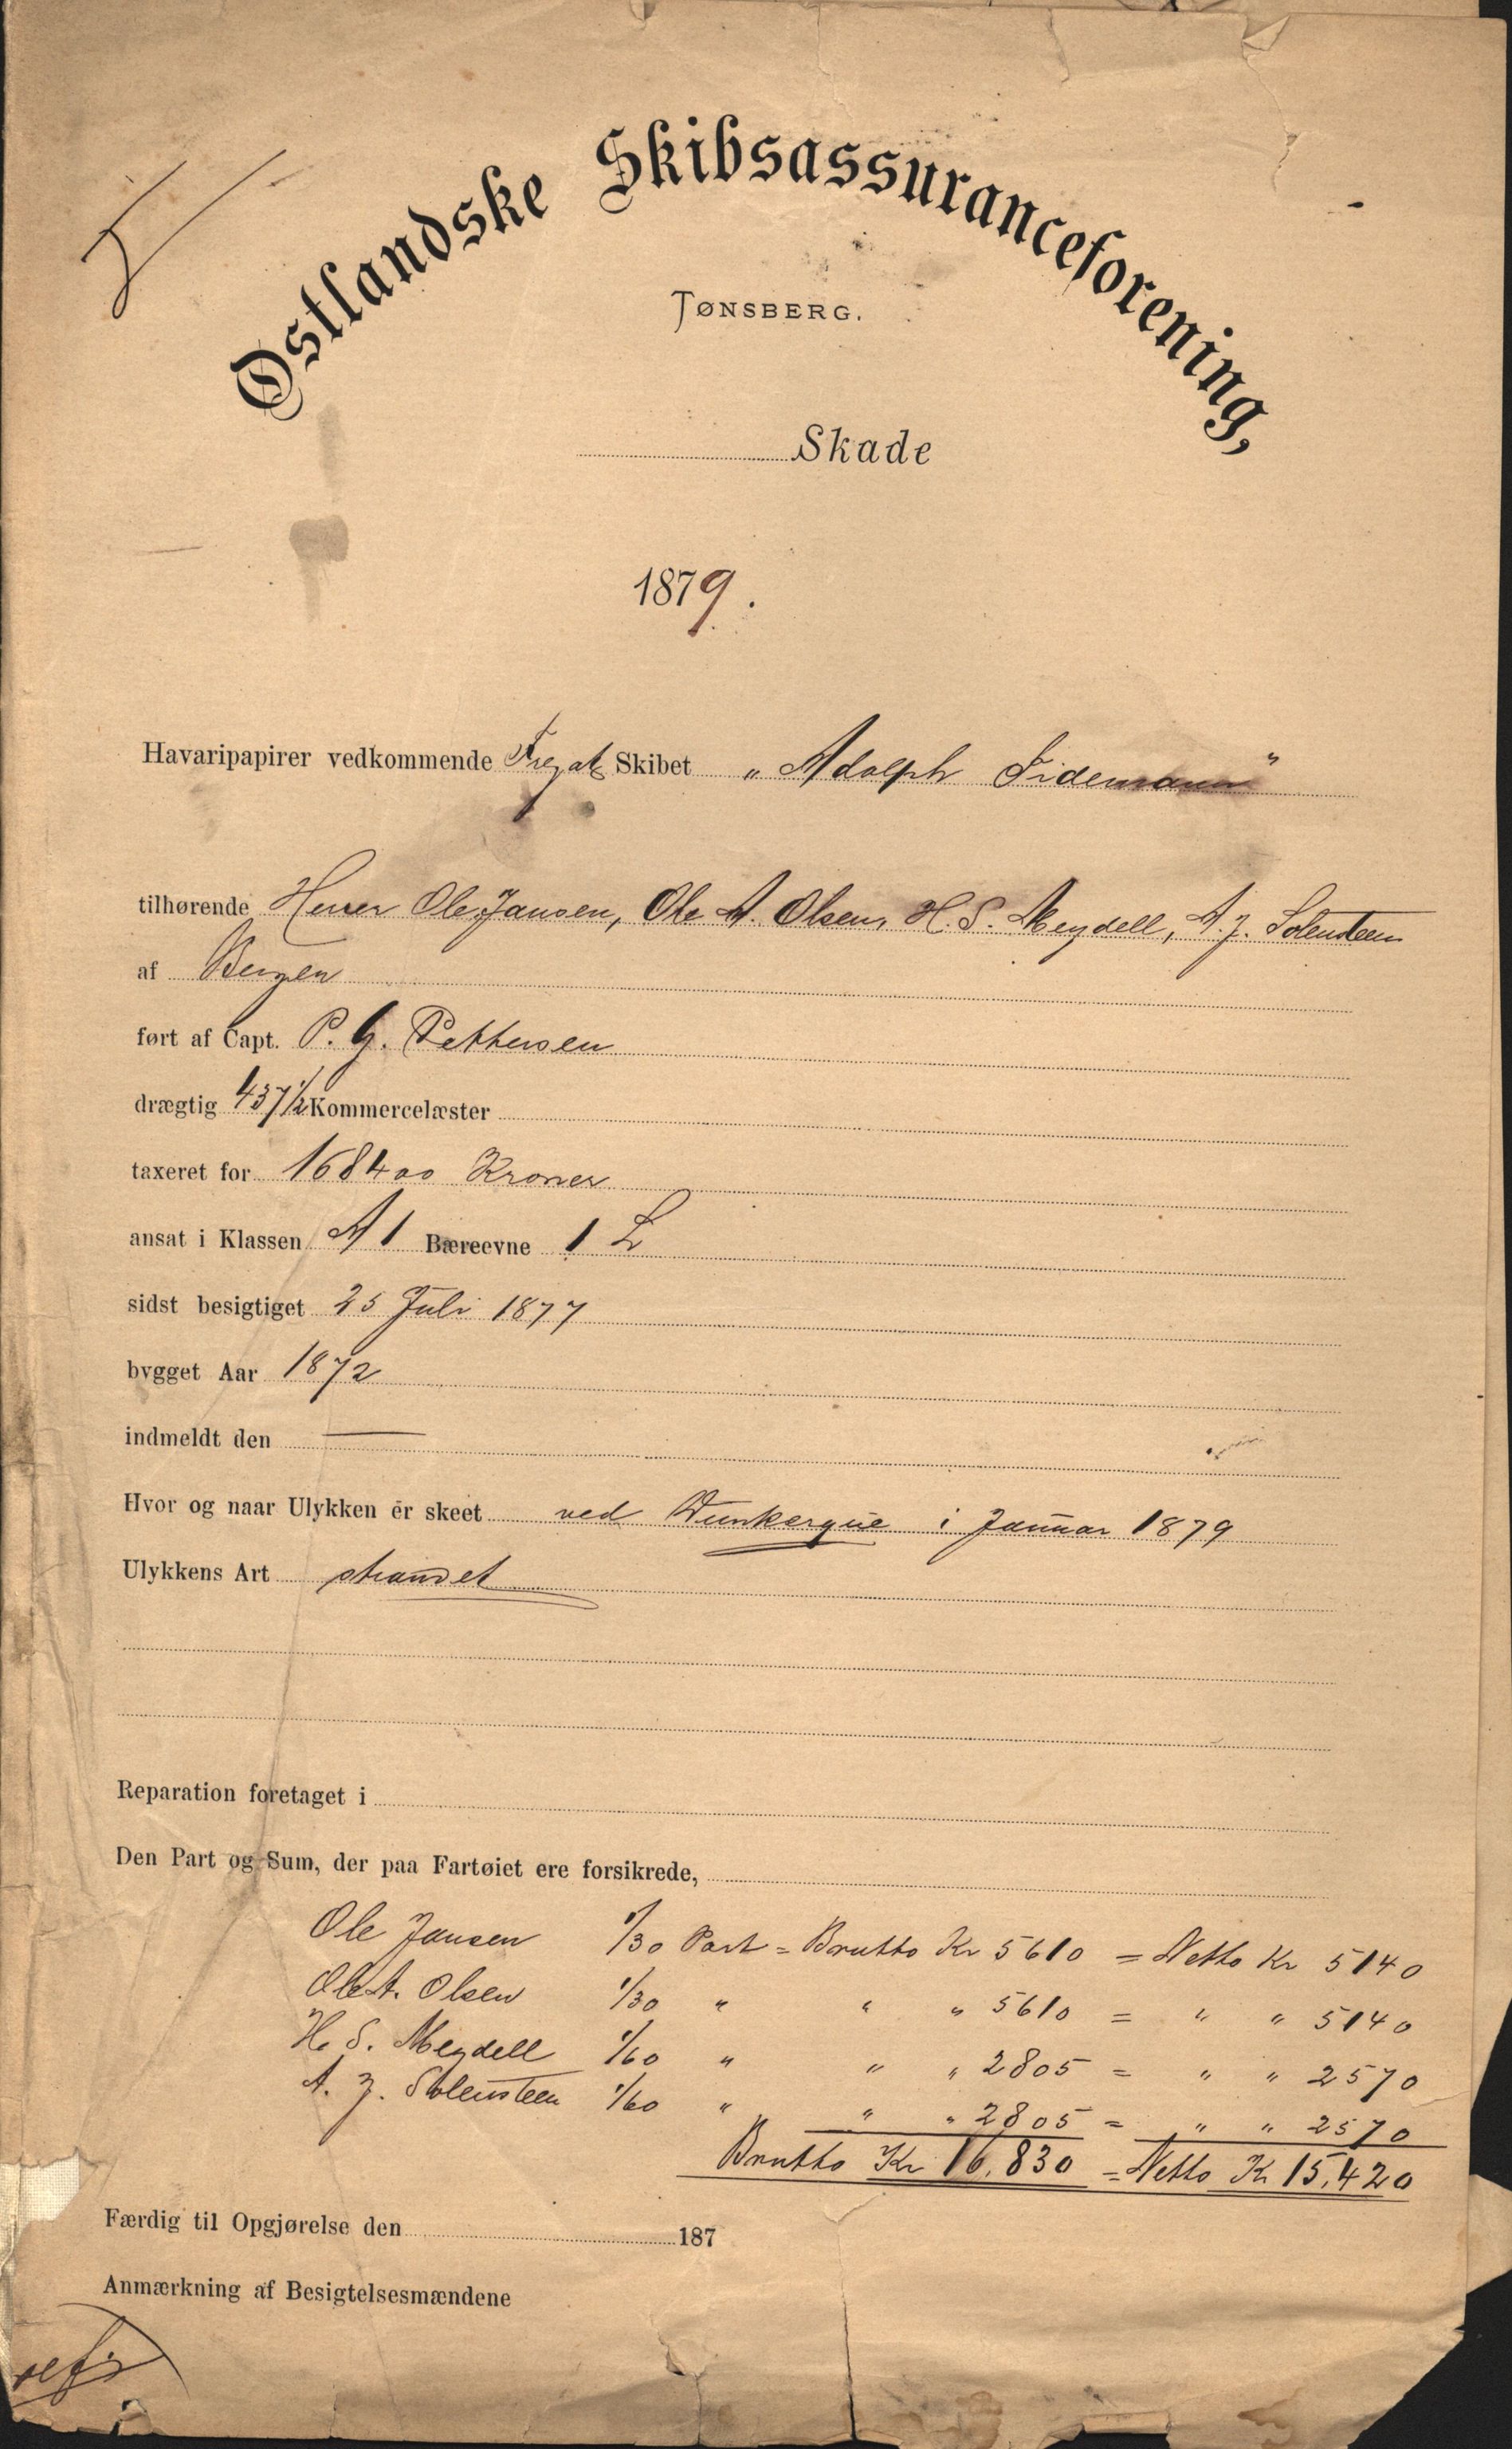 Østlandske Skibsassuranceforening,
TØNSBERG.
Skade
1879.
Havaripapirer vedkommende Fregat Skibet „Adolph Tidemann"
tilhørende Herrer Ole Jansen, Ole A. Olsen, H. S. Meydell, A. J. Solensteen
af Bergen
ført af Capt. P. G. Pettersen
drægtig 437 1/2 Kommercelæster
taxeret for 168400 Kroner
ansat i Klassen A 1 Bæreevne 1 L
sidst besigtiget 25 Juli 1877
bygget Aar 1872
indmeldt den —
Hvor og naar Ulykken er skeet ved Dunkerque i Januar 1879
Ulykkens Art strandet
Reparation foretaget i
Den Part og Sum, der paa Fartøiet ere forsikrede,
Ole Jansen 1/30 Part = Brutto Kr 5610 = Netto Kr 5140
Ole A. Olsen 1/30 " " " 5610 = " " 5140
H. S. Meydell 1/60 " " " 2805 = " " 2570
A. J. Solensteen 1/60 " " " 2805 = " " 2570
Brutto Kr 16,830 = Netto Kr 15,420
Færdig til Opgjørelse den 187
Anmærkning af Besigtelsesmændene